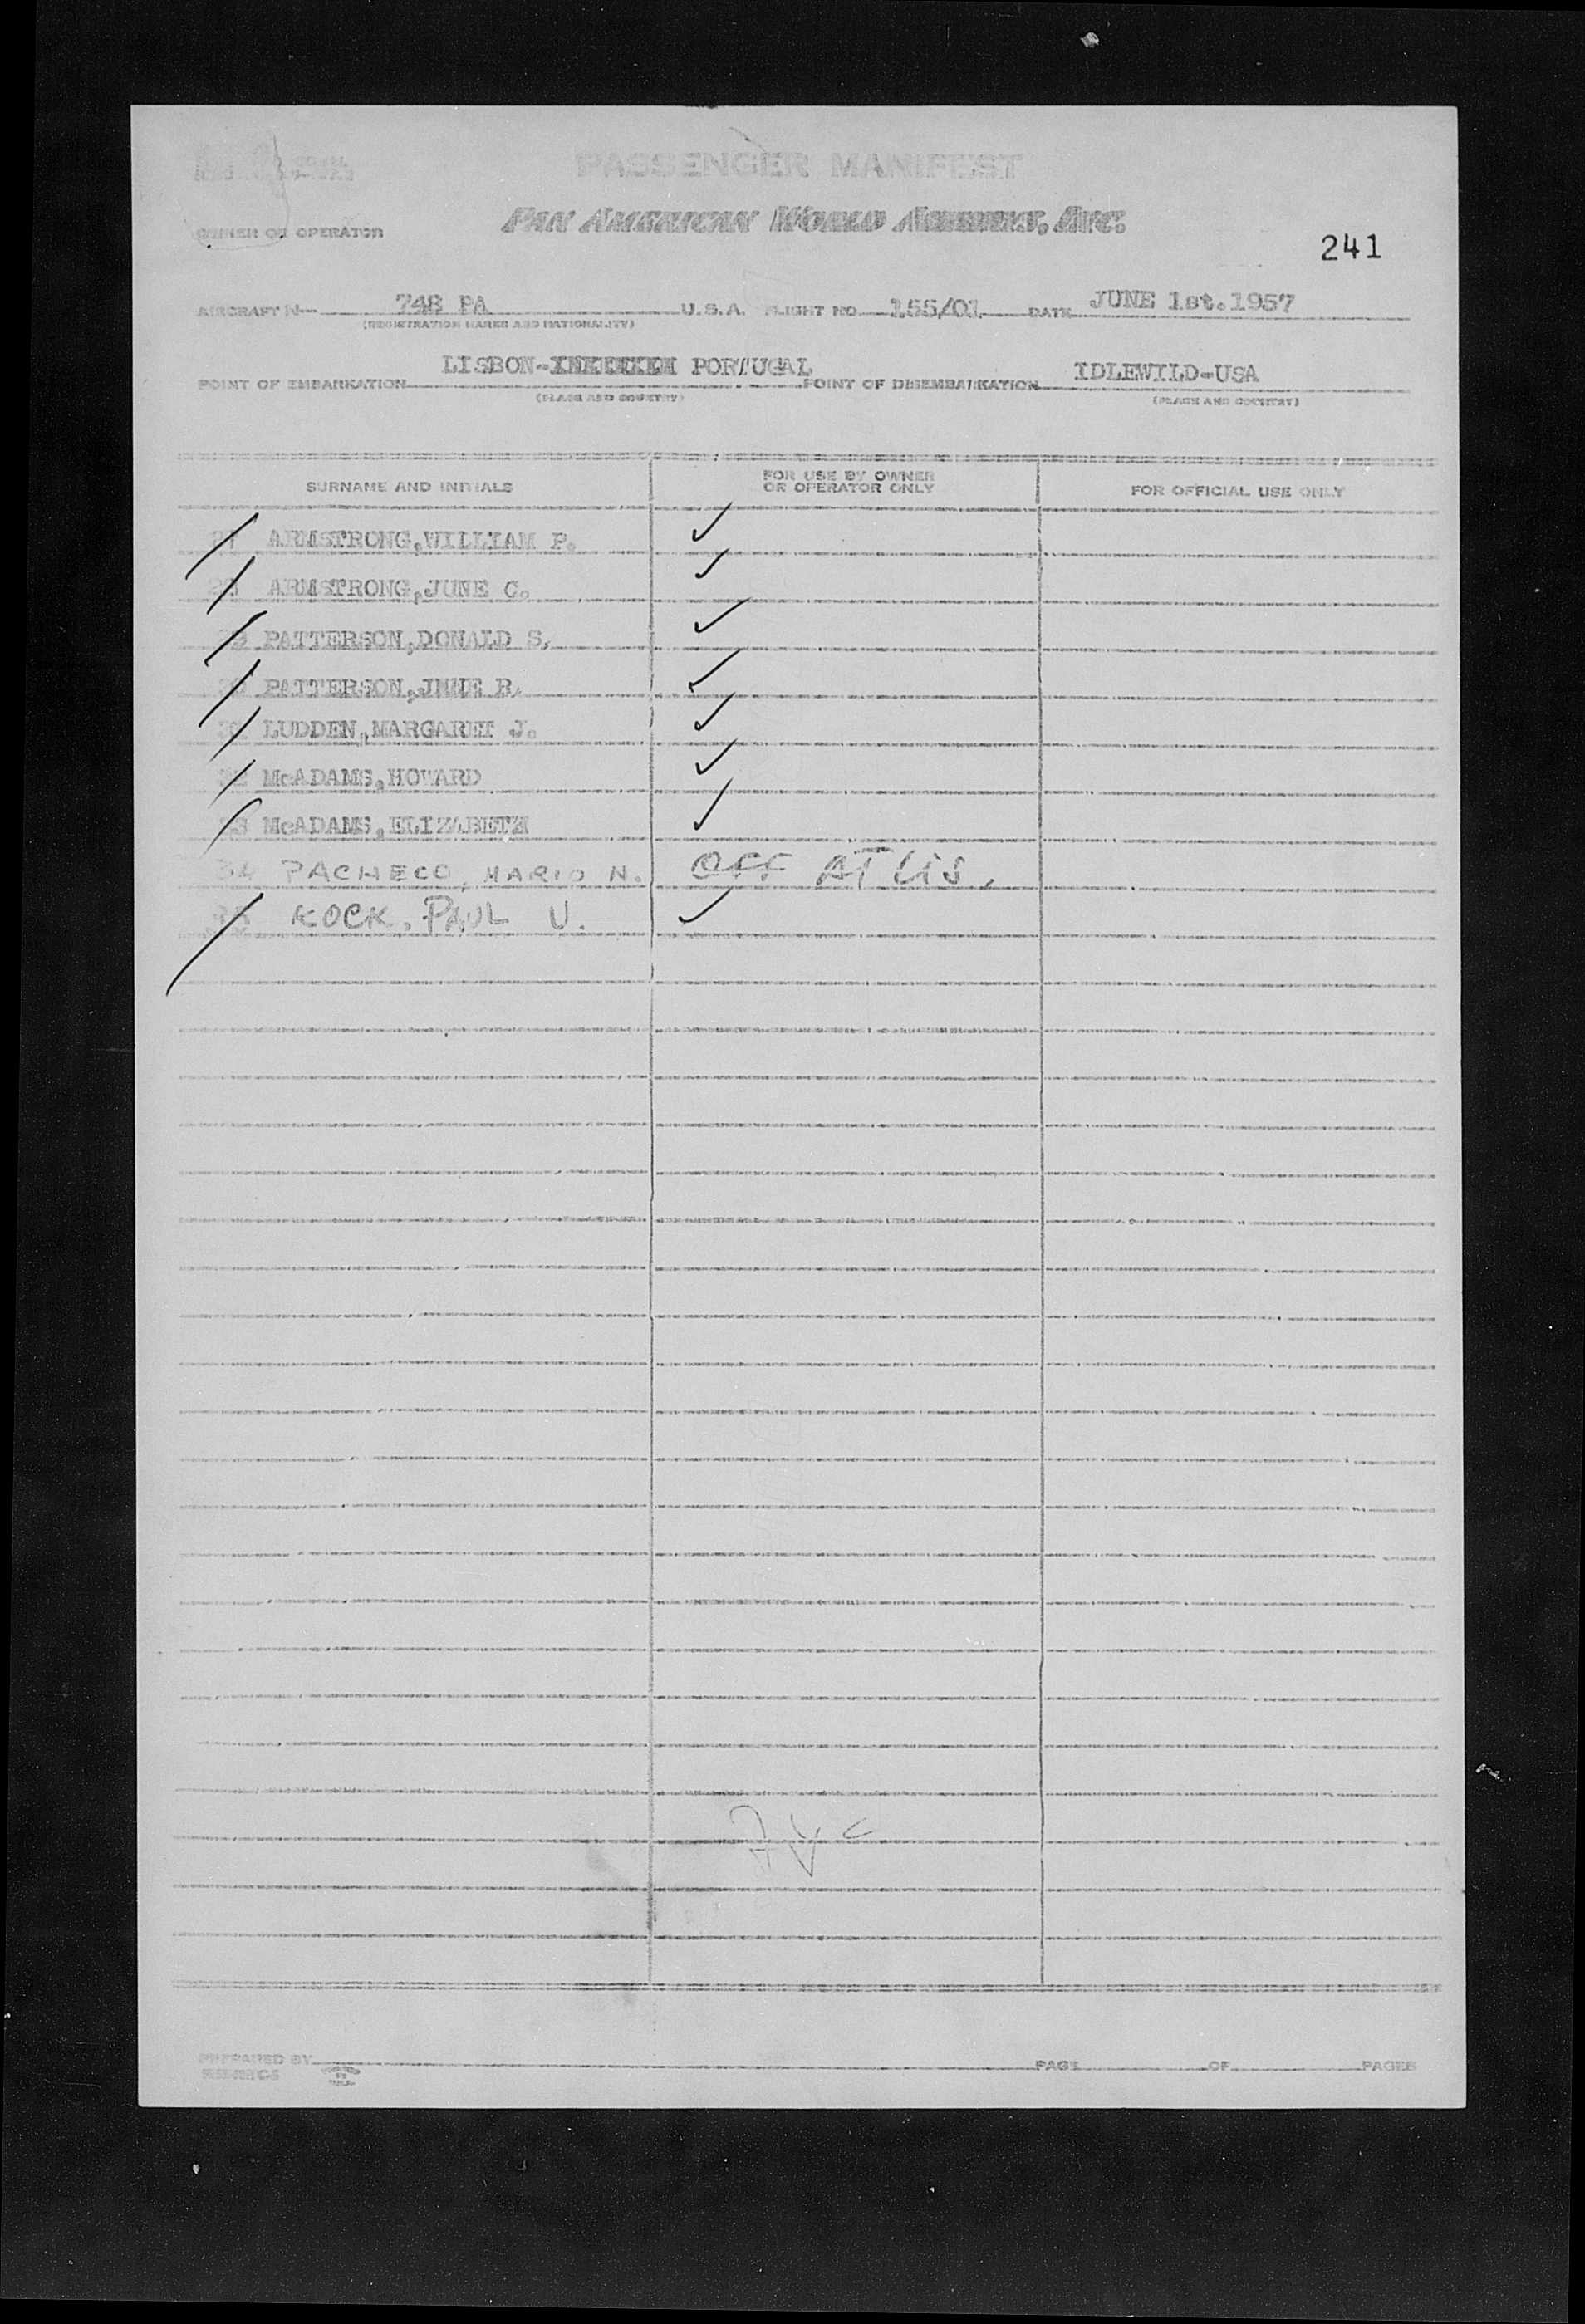 PASSENGER MANIFEST
PAN AMERICAN WORLD AIRWAYS, INC.
OWNER OR OPERATOR
241
AIRCRAFT N 748 PA U.S.A. FLIGHT NO. 155/01 DATE JUNE 1st.1957
(REGISTRATION MARKS AND NATIONALITY)
POINT OF EMBARKATION LISBON- PORTUGAL POINT OF DISEMBARKATION IDLEWILD-USA
(PLACE AND COUNTRY) (PLACE AND COUNTRY)
SURNAME AND INITIALS FOR USE BY OWNER OR OPERATOR ONLY FOR OFFICIAL USE ONLY
ARMSTRONG,WILLIAM P. ✓
ARMSTRONG,JUNE C. ✓
29 PATTERSON,DONALD S. ✓
PATTERSON, R. ✓
LUDDEN,MARGARET J. ✓
32 McADAMS,HOWARD ✓
33 McADAMS,ELIZABETH ✓
34 PACHECO, MARIO N. OFF AT LIS.
KOCK, PAUL U. ✓
PREPARED BY PAGE OF PAGES